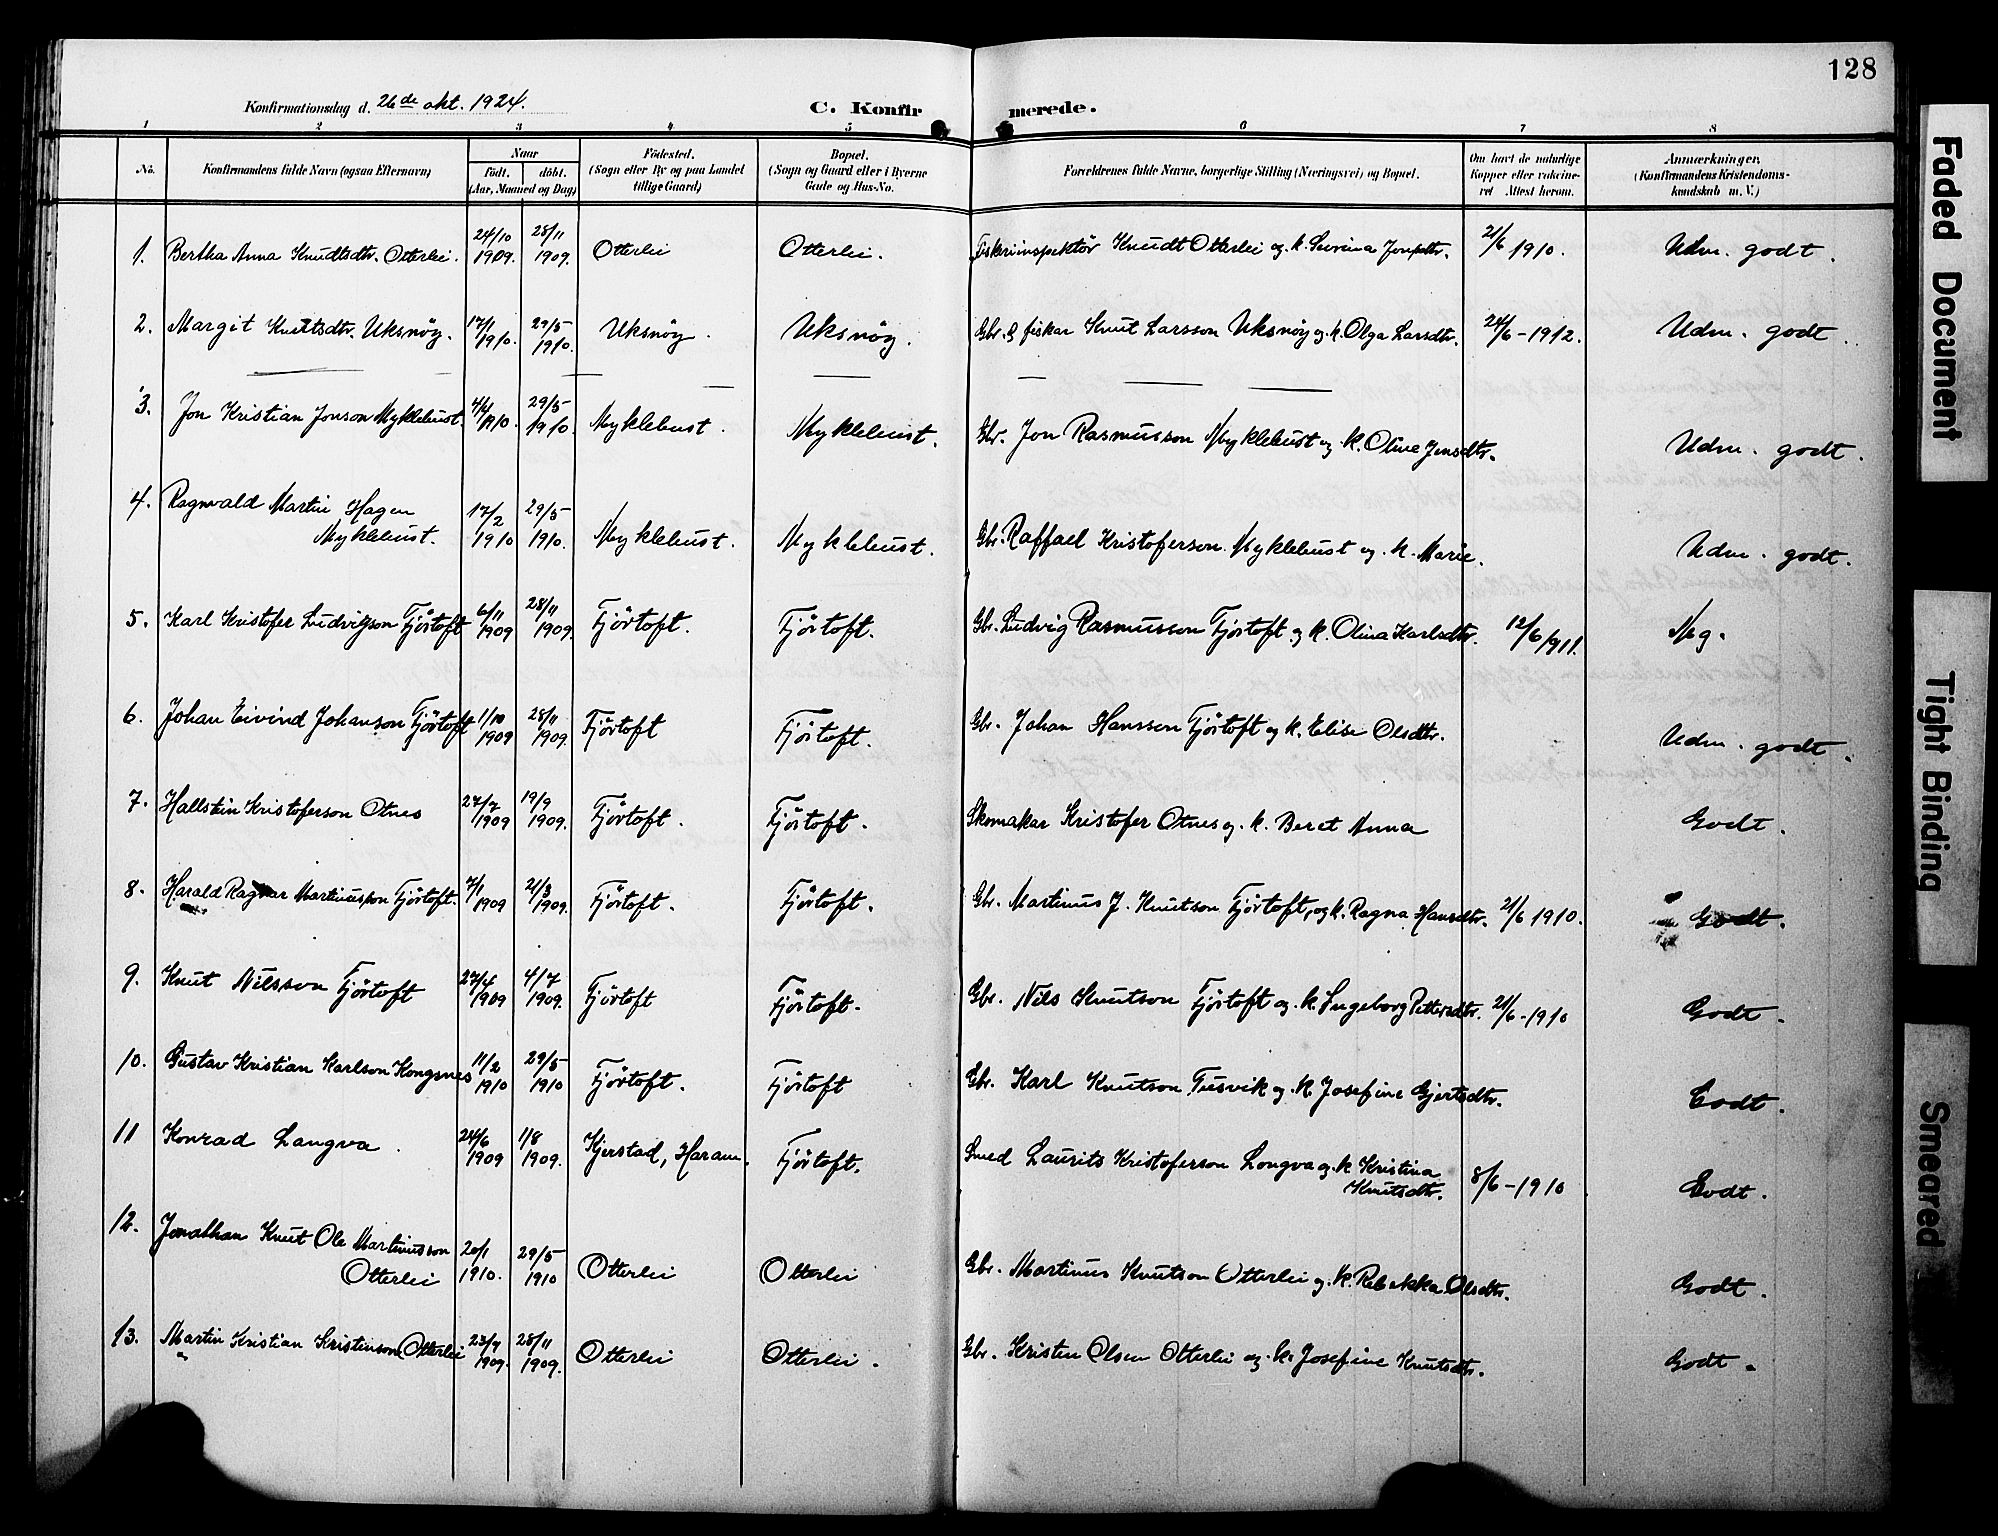 128
Konfirmationsdag d. 26de okt. 1924.
C. Konfirmerede.
1 2 3 4 5 6 7 8
No.
Konfirmandens fulde Navn (ogsaa Efternavn)
Naar
født. døbt.
(Aar, Maaned og Dag)
Fødested.
(Sogn eller By og paa Landet
tillige Gaard)
Bopæl.
(Sogn og Gaard eller i Byerne
Gade og Hus-No.
Forældrenes fulde Navne, borgerlige Stilling (Næringsvei) og Bopæl.
Om havt de naturlige
Kopper eller vakcine-
ret. Attest herom.
Anmærkninger.
(Konfirmandens Kristendoms-
kundskab m. V.)
1. Bertha Anna Knudtsdtr. Otterlei. 24/10 1909. 28/11 1909. Otterlei Otterlei. Fiskeriinspektör Knudt Otterlei og k. Severina Jonsdtr. 21/6 1910. Udm. godt.
2. Margit Knutsdtr. Uksnöy. 17/1 1910. 29/5 1910. Uksnöy. Uksnöy. Gbr. & fiskar Knut Larsson Uksnöy og k. Olga Larsdtr. 24/6-1912. Udm. godt.
3. Jon Kristian Jonson Myklebust. 4/4 1910. 29/5 1910. Myklebust. Myklebust. Gbr. Jon Rasmusson Myklebust og k. Oline Jensdtr. Udm. godt.
4. Ragnvald Martin Hagen
Myklebust. 17/2 1910 29/5 1910. Myklebust. Myklebust. Gbr. Raffael Kristoferson Myklebust og k. Marie. Udm. godt.
5. Karl Kristofer Ludvigson Fjörtoft 6/11 1909 28/11 1909. Fjörtoft. Fjörtoft. Gbr. Ludvig Rasmusson Fjörtoft og k. Olina Karlsdtr. 12/6 1911. Mg.
6. Johan Eivind Johanson Fjörtoft 1/10 1909 28/11 1909. Fjörtoft Fjörtoft. Gbr. Johan Hansson Fjörtoft og k. Elise Olsdtr. Udm. godt.
7. Hallstein Kristoferson Otnes 27/7 1909 19/9 1909. Fjörtoft. Fjörtoft. Skomakar Kristofer Otnes og k. Beret Anna Godt.
8. Harald Ragnar Martinusson Fjörtoft. 7/1 1909 21/3 1909. Fjörtoft. Fjörtoft. Gbr. Martinus J. Knutson Fjörtoft, og k. Ragna Hansdtr. 21/6 1910. Godt.
9. Knut Nilsson Fjörtoft 27/4 1909 4/7 1909. Fjörtoft Fjörtoft. Gbr. Nils Knutson Fjörtoft og k. Ingeborg Pettersdtr. 21/6-1910 Godt.
10. Gustav Kristian Karlson Kongsnes 11/2 1910 29/5 1910 Fjörtoft. Fjörtoft Gbr. Karl Knutson Tusvik og k. Josefine Gjertsdtr. Godt.
11 Konrad Langva. 24/6 1909 1/8 1909. Kjerstad, Haram. Fjörtoft. Smed Laurits Kristoferson Longva og k Kristina
Knutsdtr. 8/6-1910 Godt.
12. Jonathan Knut Ole Martinusson
Otterlei 20/1 1910. 29/5 1910 Otterlei Otterlei Gbr. Martinus Knutson Otterlei og k. Rebekka Olsdtr. Godt.
13. Martin Kristian Kristenson Otterlei 23/9 1909. 28/11 1909. Otterlei Otterlei. Gbr. Kristen Olsen Otterlei og k. Josefine Knutsdtr. Godt.
Faded Document
Tight Binding
Smeared